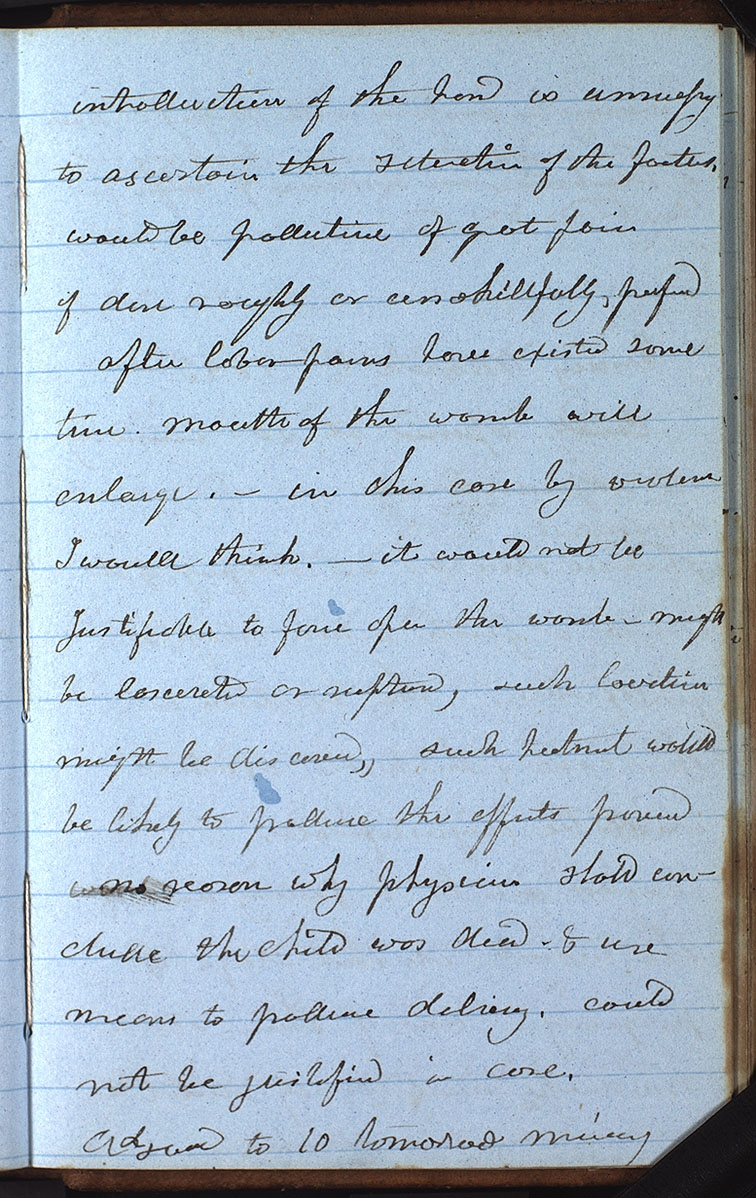 introduction of the hand is unnecessary
to ascertain the situation of the foetus,
would be productive of great pain
if done roughly or unskillfully, perform
after labor pains have existed some
time. mouth of the womb will
enlarge. — in this case by violence
I would think. — it would not be
Justifiable to force open the womb — might
be lascerated or ruptured, such laceration
might be discovered, such treatment would
be likely to produce the effects proved
no reason why physician should con-
clude the child was dead - & use
means to produce delivery. could
not be justified in case.
Adjourned to 10 tomorrow morning